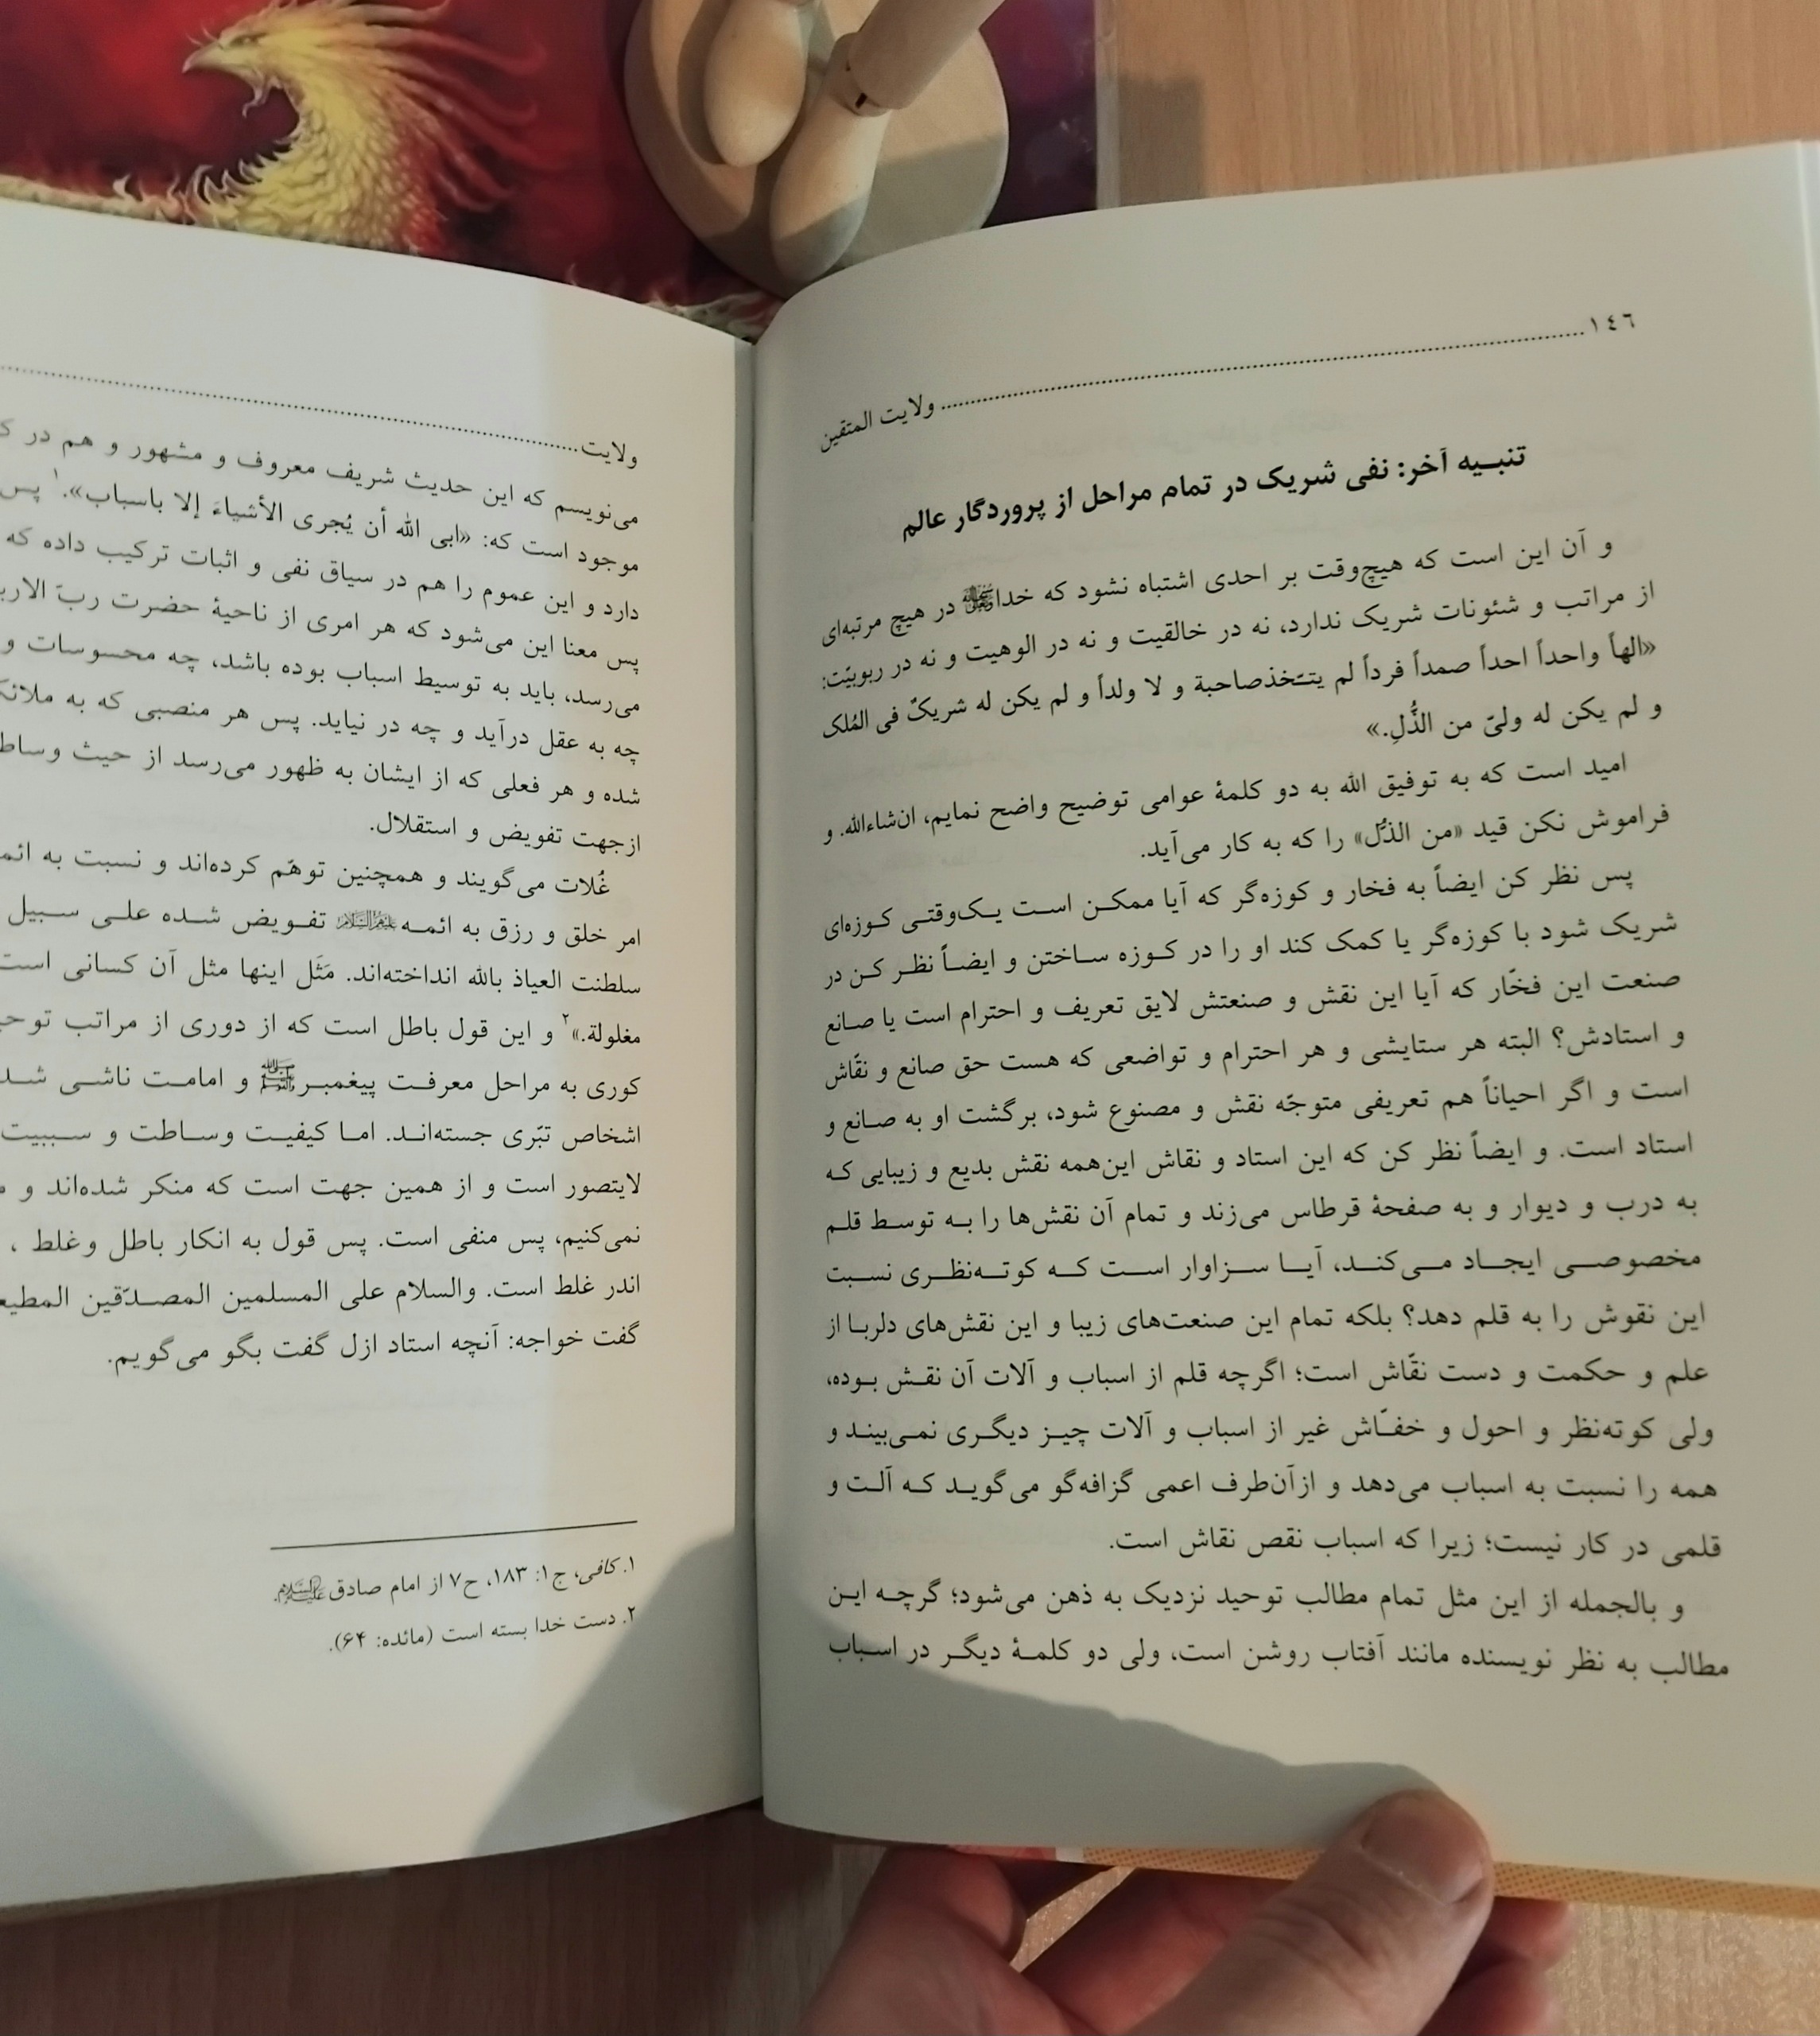 ۱٤٦ ولایت المتقین
تنبیه آخر: نفی شریک در تمام مراحل از پروردگار عالم
و آن این است که هیچ‌وقت بر احدی اشتباه نشود که خدا در هیچ مرتبه‌ای
از مراتب و شئونات شریک ندارد، نه در خالقیت و نه در الوهیت و نه در ربوبیّت:
«الهاً واحداً احداً صمداً فرداً لم یتّخذصاحبة و لا ولداً و لم یکن له شریکٌ فی المُلک
و لم یکن له ولیّ من الذُّلِ.»
امید است که به توفیق الله به دو کلمۀ عوامی توضیح واضح نمایم، ان‌شاءالله. و
فراموش نکن قید «من الذُّل» را که به کار می‌آید.
پس نظر کن ایضاً به فخار و کوزه‌گر که آیا ممکن است یک‌وقتی کوزه‌ای
شریک شود با کوزه‌گر یا کمک کند او را در کوزه ساختن و ایضاً نظر کن در
صنعت این فخّار که آیا این نقش و صنعتش لایق تعریف و احترام است یا صانع
و استادش؟ البته هر ستایشی و هر احترام و تواضعی که هست حق صانع و نقّاش
است و اگر احیاناً هم تعریفی متوجّه نقش و مصنوع شود، برگشت او به صانع و
استاد است. و ایضاً نظر کن که این استاد و نقاش این‌همه نقش بدیع و زیبایی که
به درب و دیوار و به صفحۀ قرطاس می‌زند و تمام آن نقش‌ها را به توسط قلم
مخصوصی ایجاد می‌کند، آیا سزاوار است که کوته‌نظری نسبت
این نقوش را به قلم دهد؟ بلکه تمام این صنعت‌های زیبا و این نقش‌های دلربا از
علم و حکمت و دست نقّاش است؛ اگرچه قلم از اسباب و آلات آن نقش بوده،
ولی کوته‌نظر و احول و خفّاش غیر از اسباب و آلات چیز دیگری نمی‌بیند و
همه را نسبت به اسباب می‌دهد و ازآن‌طرف اعمی گزافه‌گو می‌گوید که آلت و
قلمی در کار نیست؛ زیرا که اسباب نقص نقاش است.
و بالجمله از این مثل تمام مطالب توحید نزدیک به ذهن می‌شود؛ گرچه این
مطالب به نظر نویسنده مانند آفتاب روشن است، ولی دو کلمۀ دیگر در اسباب
ولایت
می‌نویسم که این حدیث شریف معروف و مشهور و هم در
موجود است که: «ابی الله أن یُجری الأشیاءَ إلا باسباب».۱ پس
دارد و این عموم را هم در سیاق نفی و اثبات ترکیب داده که
پس معنا این می‌شود که هر امری از ناحیۀ حضرت ربّ
می‌رسد، باید به توسیط اسباب بوده باشد، چه محسوسات و
چه به عقل درآید و چه در نیاید. پس هر منصبی که به
شده و هر فعلی که از ایشان به ظهور می‌رسد از حیث
ازجهت تفویض و استقلال.
غُلات می‌گویند و همچنین توهّم کرده‌اند و نسبت به
امر خلق و رزق به ائمه علیهم السلام تفویض شده علی سبیل
سلطنت العیاذ بالله انداخته‌اند. مَثَل اینها مثل آن کسانی است
مغلولة.»۲ و این قول باطل است که از دوری از مراتب
کوری به مراحل معرفت پیغمبر ﷺ و امامت ناشی
اشخاص تبّری جسته‌اند. اما کیفیت وساطت و سببیت
لایتصور است و از همین جهت است که منکر شده‌اند و
نمی‌کنیم، پس منفی است. پس قول به انکار باطل وغلط ،
اندر غلط است. والسلام علی المسلمین المصدّقین
گفت خواجه: آنچه استاد ازل گفت بگو می‌گویم.
۱. کافی، ج۱: ۱۸۳، ح۷ از امام صادق علیه السلام.
۲. دست خدا بسته است (مائده: ۶۴).